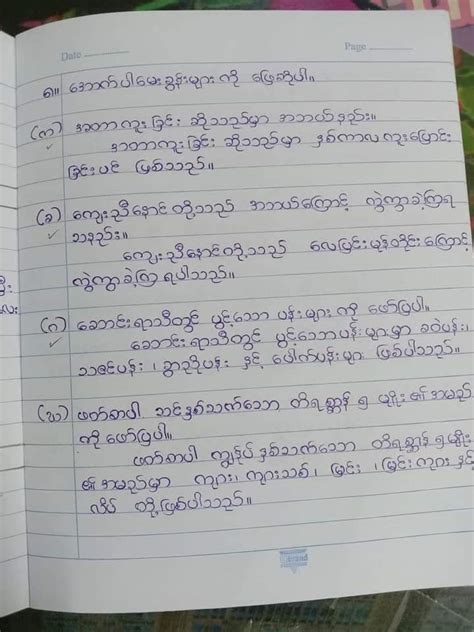 Date
Page
၈။ အောက်ပါမေးခွန်းများကို ဖြေဆိုပါ။
(က) အတာကူးခြင်း ဆိုသည်မှာ အဘယ်နည်း။
အတာကူးခြင်း ဆိုသည်မှာ နှစ်ကာလကူးပြောင်း
ခြင်းပင် ဖြစ်သည်။
(ခ) ကျေးညီနောင်တို့သည် အဘယ်ကြောင့် ကွဲကွာခဲ့ကြရ
သနည်း။
ကျေးညီနောင်တို့သည် လေပြင်းမုန်တိုင်းကြောင့်
ကွဲကွာခဲ့ကြရပါသည်။
(ဂ) ဆောင်းရာသီတွင် ပွင့်သောပန်းများကို ဖော်ပြပါ။
ဆောင်းရာသီတွင် ပွင့်သောပန်းများမှာ ခဝဲပန်း၊
သဇင်ပန်း၊ စွာညိုပန်း နှင့် ပေါက်ပန်းများ ဖြစ်ပါသည်။
(ဃ) ဖတ်စာပါ သင်နှစ်သက်သော တိရစ္ဆာန် ၅ မျိုး၏အမည်
ကိုဖော်ပြပါ။
ဖတ်စာပါ ကျွန်ုပ်နှစ်သက်သော တိရစ္ဆာန် ၅ မျိုး
၏အမည်မှာ ကျား၊ ကျားသစ်၊ မြင်း၊ မြင်းကျားနှင့်
လိပ် တို့ဖြစ်ပါသည်။